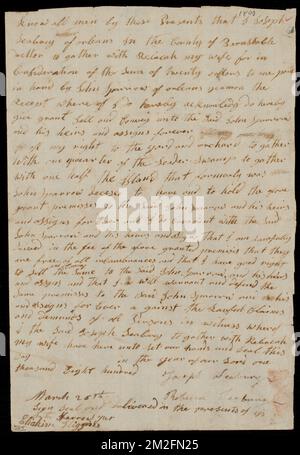 1800
Know all men by these Presents that I Joseph
Seabury of orleans in the County of Barnstable
together with Rebecah my wife for in
Consideration of the Sum of Twenty dollars to me paid
in hand by John Sparrow of orleans yeaman the
Receept where of I do hereby acknowledg do hereby
give grant Sell and Convey unto the Said John Sparrow
his heirs and assigns forever
all my right to the yard and orchard to gather
with one quarter of the to gather
with one half the Island that formerly was
John Sparrow deceesed to have and to hold the
grant premisses to the John Sparrow and his heirs
and assigns for I do Covenant with the Said
John Sparrow and his heirs and that I am lawfully
Seized in the fee of the above grant premises that they
are free of all incumbrances and that I have good right
to Sell the Same to the Said John Sparrow and his heirs
and assigns and that I will warrant and defend the
Same premisses to the Said John Sparrow and his heirs
and assigns for Ever against the Lawful Claims
and Demands of all Persons in witness where of
I the Said Joseph Seabury to gather with Rebecah
my wife have here unto set our hands and Seal this
day in the year of our Lord one
thousand Eight hundred
Joseph Seabury
March 25th Rebecca Seabury
Sign Seal and delivered in the presents of us